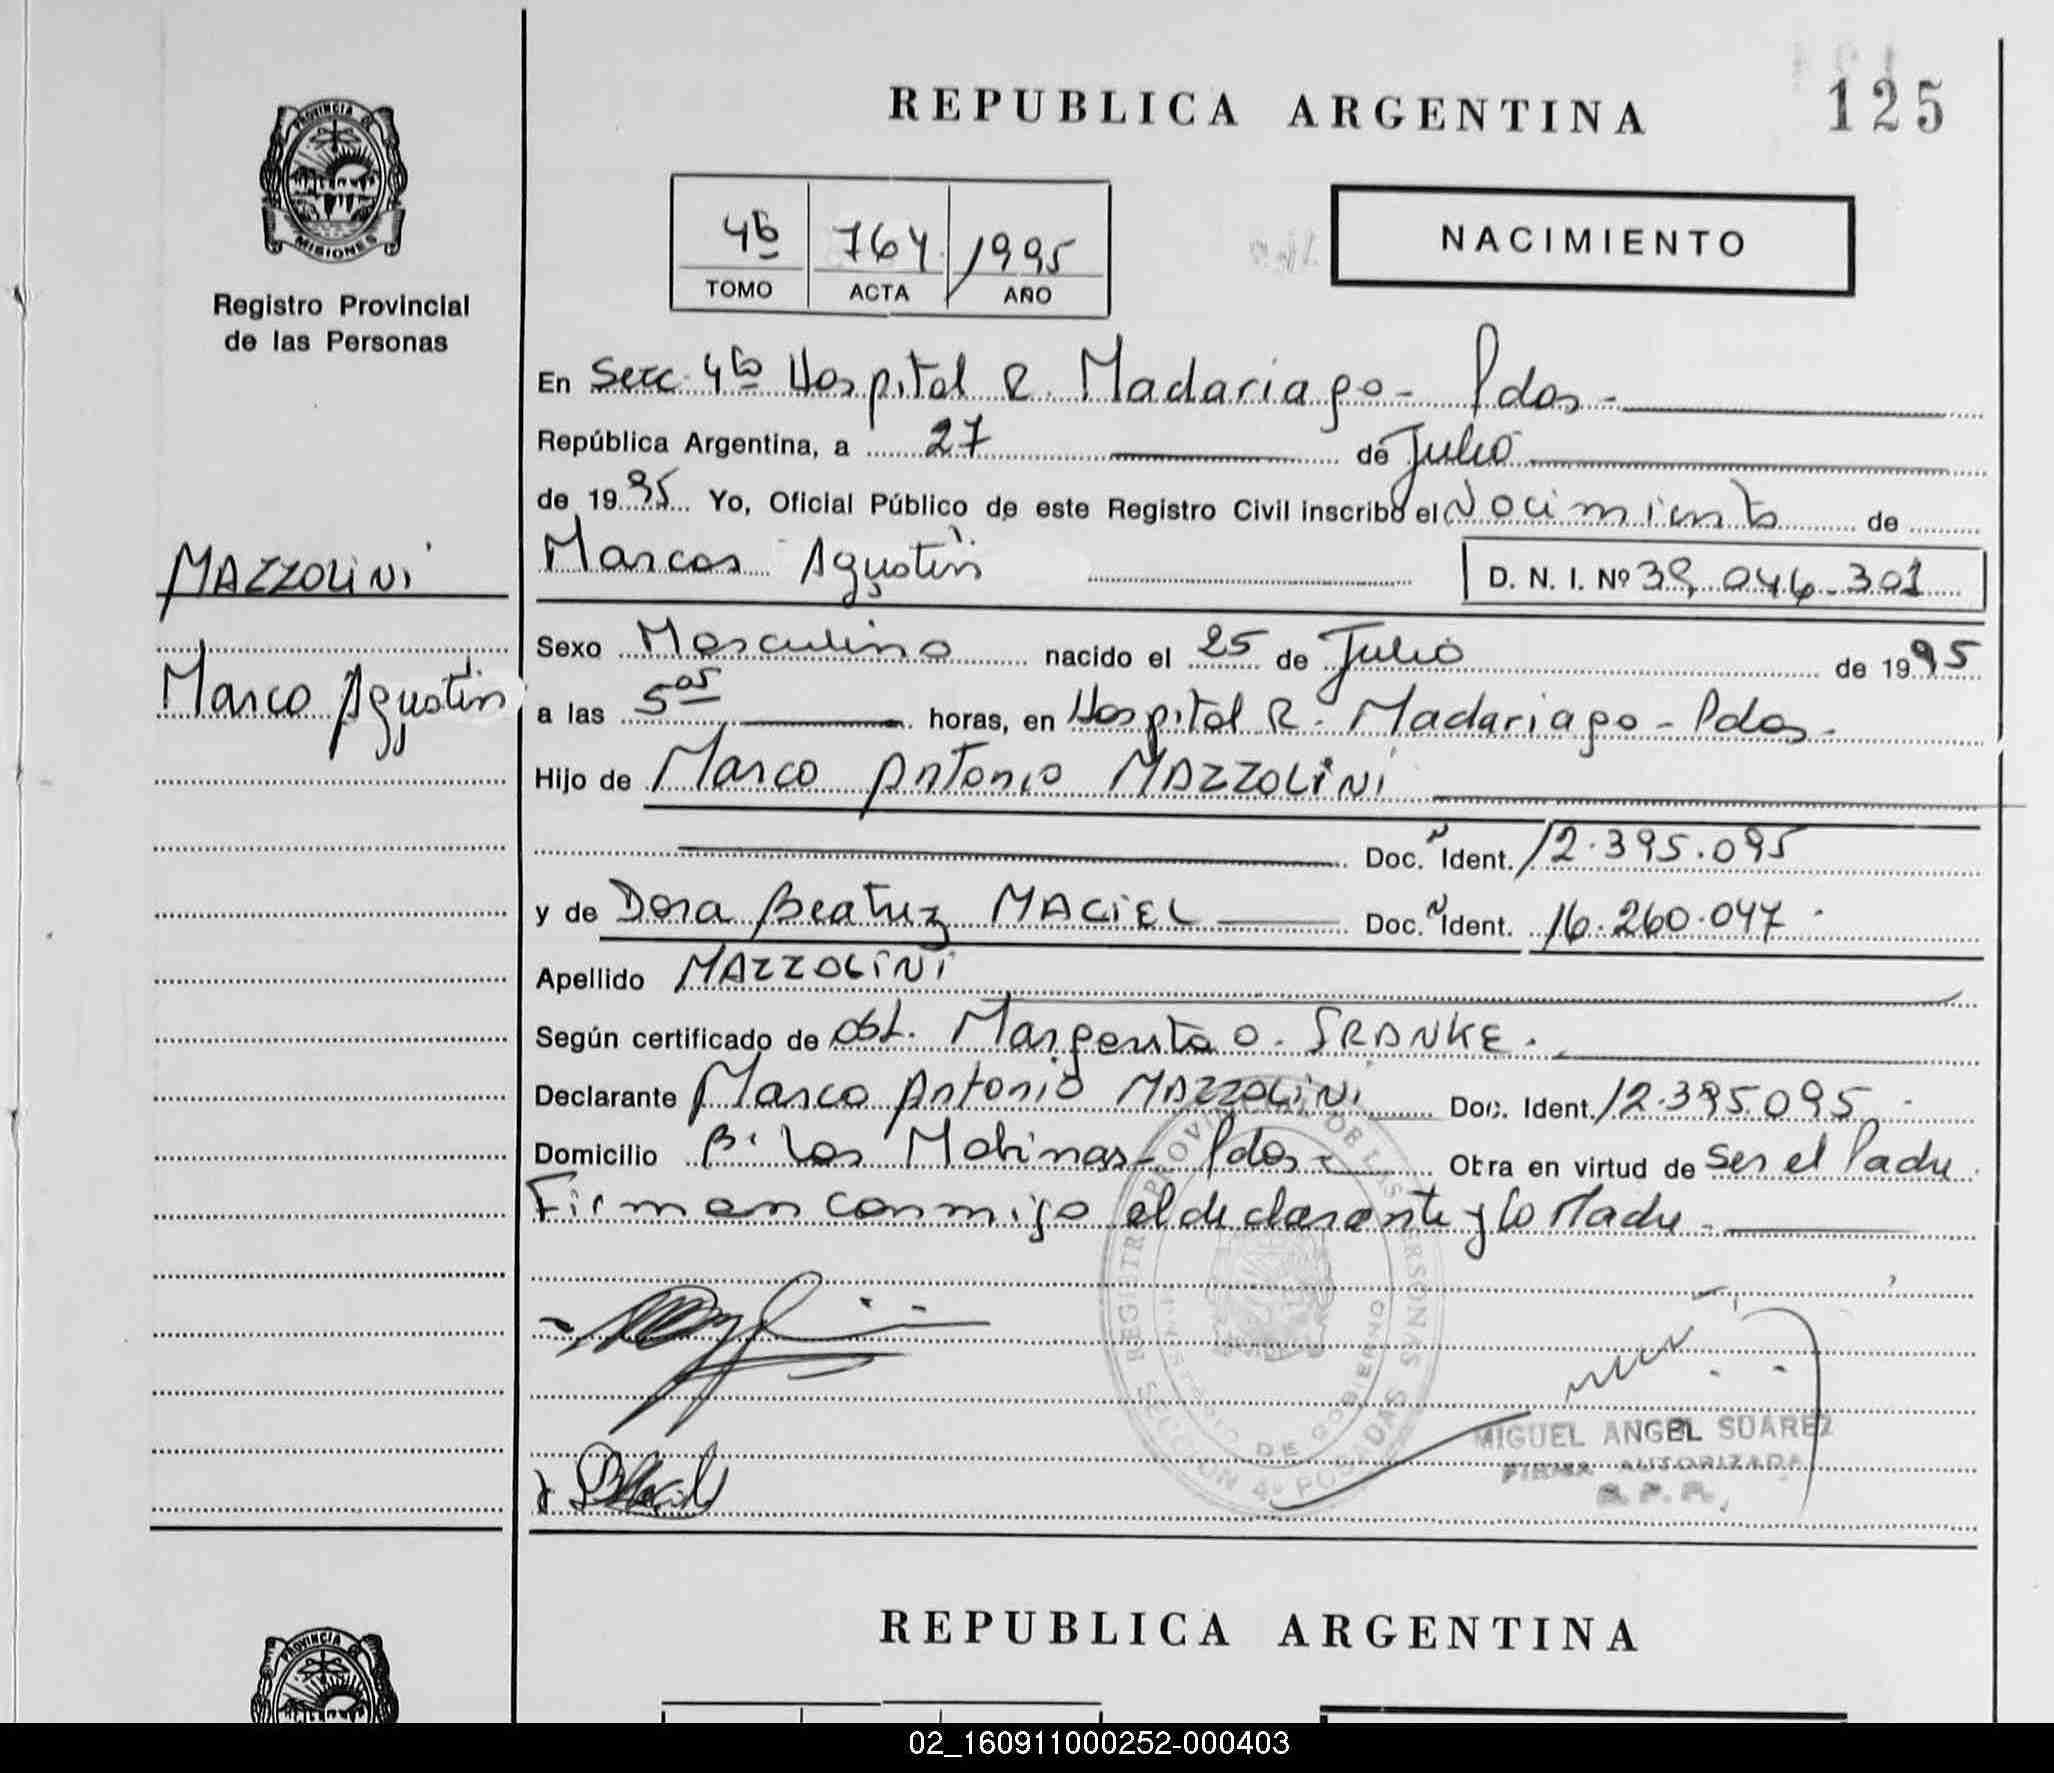 REPUBLICA ARGENTINA
125
PROVINCIA DE
MISIONES
Registro Provincial
de las Personas
4to 764 1995
TOMO ACTA AÑO
NACIMIENTO
En Secc. 4ta Hospital R. Madariaga - Pdas -
República Argentina, a 27 de Julio
de 1995 Yo, Oficial Público de este Registro Civil inscribo el Nacimiento de
MAZZOLINI
Marcos Agustín D. N. I. Nº 39.046.301
Sexo Masculino nacido el 25 de Julio de 1995
Marco Agustín
a las 5 05 horas, en Hospital R. Madariaga - Pdas -
Hijo de Marco Antonio MAZZOLINI
Doc. Ident. 12.395.095
y de Dora Beatriz MACIEL Doc. Ident. 16.260.047
Apellido MAZZOLINI
Según certificado de Obst. Margarita O. FRANKE.
Declarante Marco Antonio MAZZOLINI Doc. Ident. 12.395.095
Domicilio B. Los Molinas - Pdas - Obra en virtud de Ser el Padre.
Firman conmigo el declarante y la Madre -
REGISTRO PROVINCIAL DE LAS PERSONAS
MINISTERIO DE GOBIERNO
SECCION 4a POSADAS
MIGUEL ANGEL SUAREZ
FIRMA AUTORIZADA
R. P. P.
REPUBLICA ARGENTINA
PROVINCIA DE
02_160911000252-000403